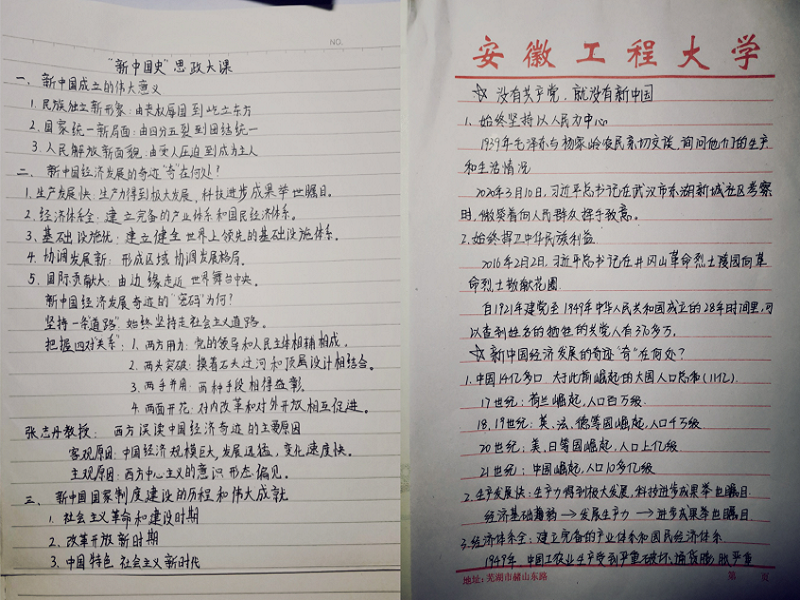 NO.
"新中国史"思政大课
一、新中国成立的伟大意义
1. 民族独立新形象：由衰败屈国到屹立东方
2. 国家统一新局面：由四分五裂到团结统一
3. 人民解放新面貌：由受人压迫到成为主人
二、新中国经济发展的奇迹"奇"在何处？
1. 生产发展快：生产力得到极大发展，科技进步成果举世瞩目。
2. 经济体系全：建立完备的产业体系和国民经济体系。
3. 基础设施优：建立健全世界上领先的基础设施体系。
4. 协调发展新：形成区域协调发展格局。
5. 国际贡献大：由边缘走近世界舞台中央。
新中国经济发展奇迹的"密码"为何？
坚持一条"道路"：始终坚持走社会主义道路。
把握四对"关系"：1. 两方用力：党的领导和人民主体相辅相成。
2. 两头突破：摸着石头过河和顶层设计相结合。
3. 两手并用：两种手段相得益彰。
4. 两面开花：对内改革和对外开放相互促进。
张志丹教授：西方误读中国经济奇迹的主要原因
客观原因：中国经济规模巨大，发展迅猛，变化速度快。
主观原因：西方中心主义的意识形态偏见。
三、新中国国家制度建设的历程和伟大成就
1. 社会主义革命和建设时期
2. 改革开放新时期
3. 中国特色社会主义新时代
安徽工程大学
☆没有共产党，就没有新中国
1. 始终坚持以人民为中心
1939年毛泽东与杨家岭农民亲切交谈，询问他们的生产
和生活情况
2020年3月10日，习近平总书记在武汉市东湖新城社区考察
时，微笑着向人民群众挥手致意。
2. 始终捍卫中华民族利益
2016年2月2日，习近平总书记在井冈山革命烈士陵园向革
命烈士敬献花圈
自1921年建党至1949年中华人民共和国成立的28年时间里，可
以查到姓名的牺牲的共党人有370多万。
☆新中国经济发展的奇迹"奇"在何处？
1. 中国14亿多口 大于此前崛起的大国人口总和(11亿).
17世纪：荷兰崛起，人口百万级.
18、19世纪：英、法、德等国崛起，人口千万级
20世纪：美、日等国崛起，人口上亿级
21世纪：中国崛起，人口10多亿级
2. 生产发展快：生产力得到极大发展，科技进步成果举世瞩目.
经济基础薄弱→发展生产力→进步成果举世瞩目
3. 经济体系全：建立完备的产业体系和国民经济体系
1949年，中国工农业生产受到严重破坏，通货膨胀严重
地址：芜湖市赭山东路 第 页